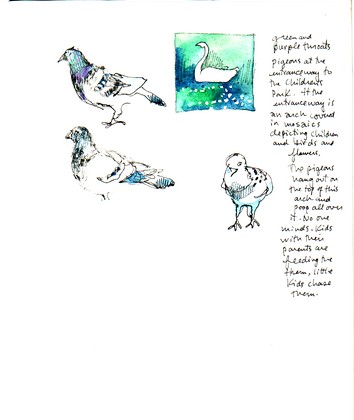 green and
purple throats
pigeons at the
entranceway to
the Children's
Park. At the
entranceway is
an arch covered
in mosaics
depicting children
and birds and
flowers.
The pigeons
hang out on
the top of this
arch and
poop all over
it. No one
minds. Kids
with their
parents are
feeding the
them, little
Kids chase
them.